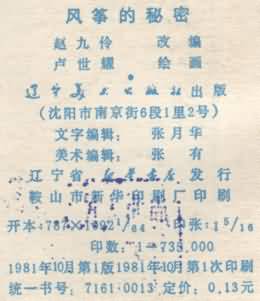 风筝的秘密
赵九伶 改编
卢世耀 绘画
辽宁美术出版社出版
(沈阳市南京街6段1里2号)
文字编辑: 张月华
美术编辑: 张有
辽宁省新华书店发行
鞍山市新华印刷厂印刷
开本:787×1092 1/64 印张:1 5/16
印数: 1—735,000
1981年10月第1版1981年10月第1次印刷
统一书号: 7161·0013 定价: 0.13元